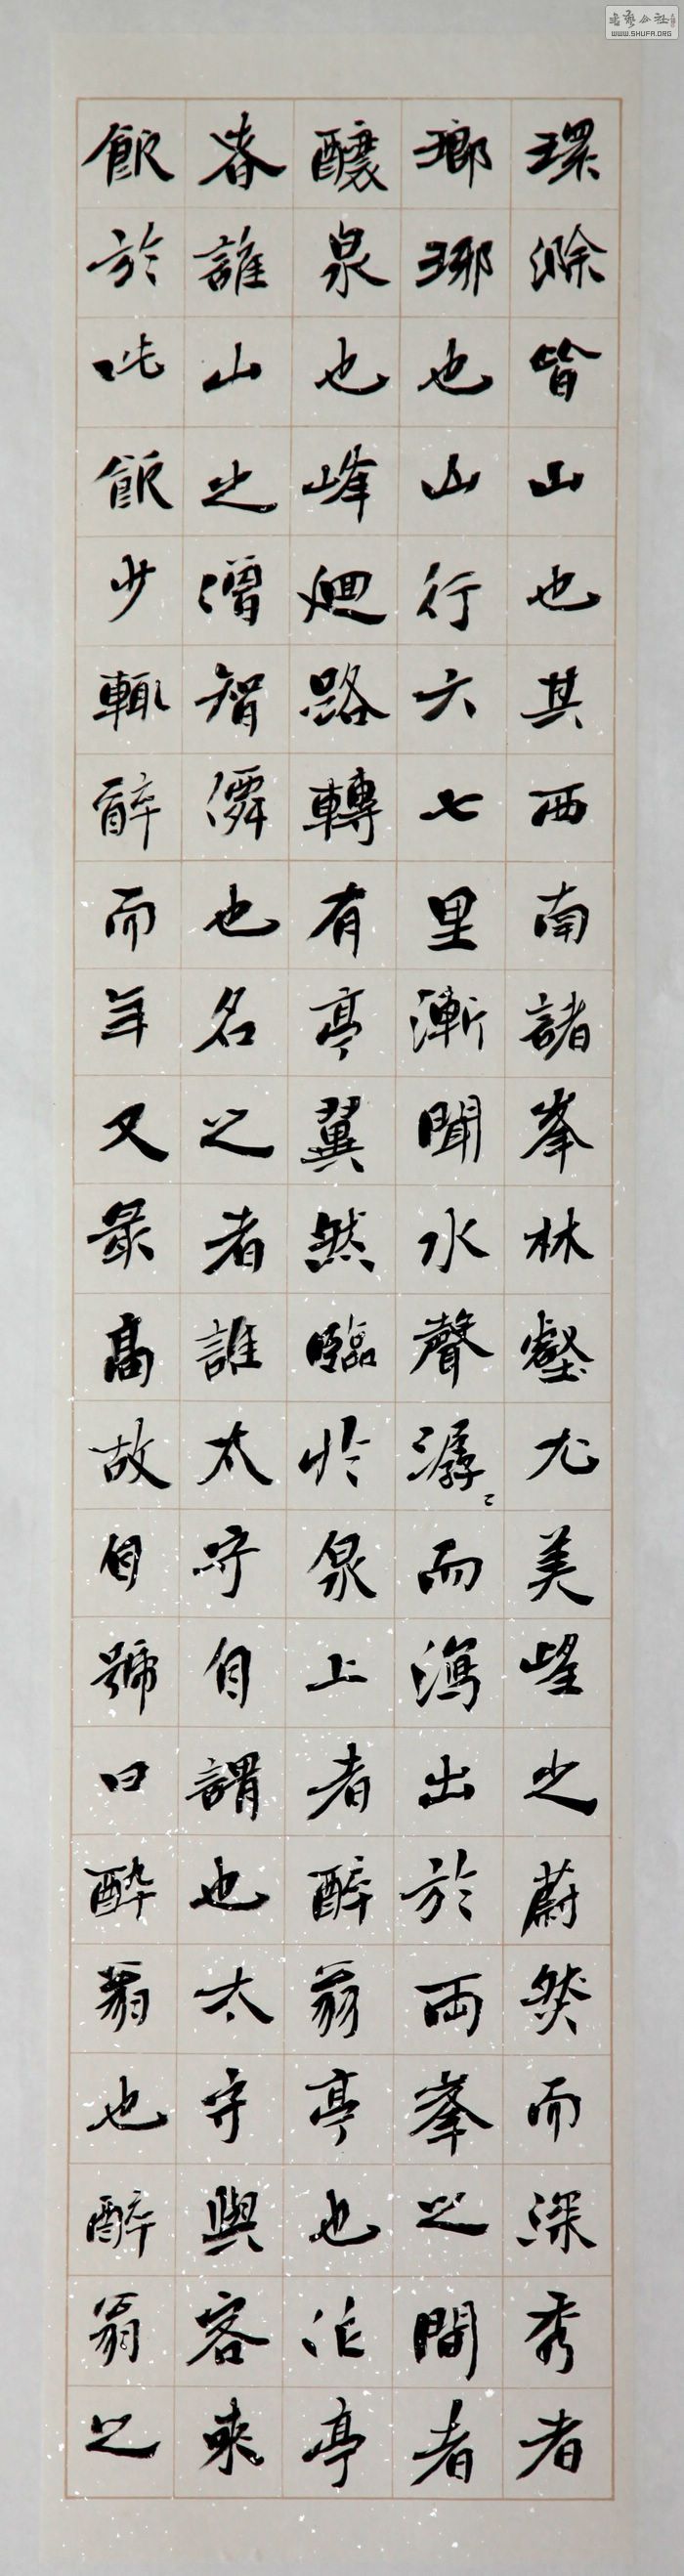 環滁皆山也其西南諸峯林壑尤美望之蔚然而深秀者
瑯琊也山行六七里漸聞水聲潺〻而瀉出於兩峯之間者
釀泉也峰廻路轉有亭翼然臨於泉上者醉翁亭也作亭
者誰山之僧智僊也名之者誰太守自謂也太守與客來
飲於此飲少輒醉而年又最高故自號曰醉翁也醉翁之
WWW.SHUFA.ORG